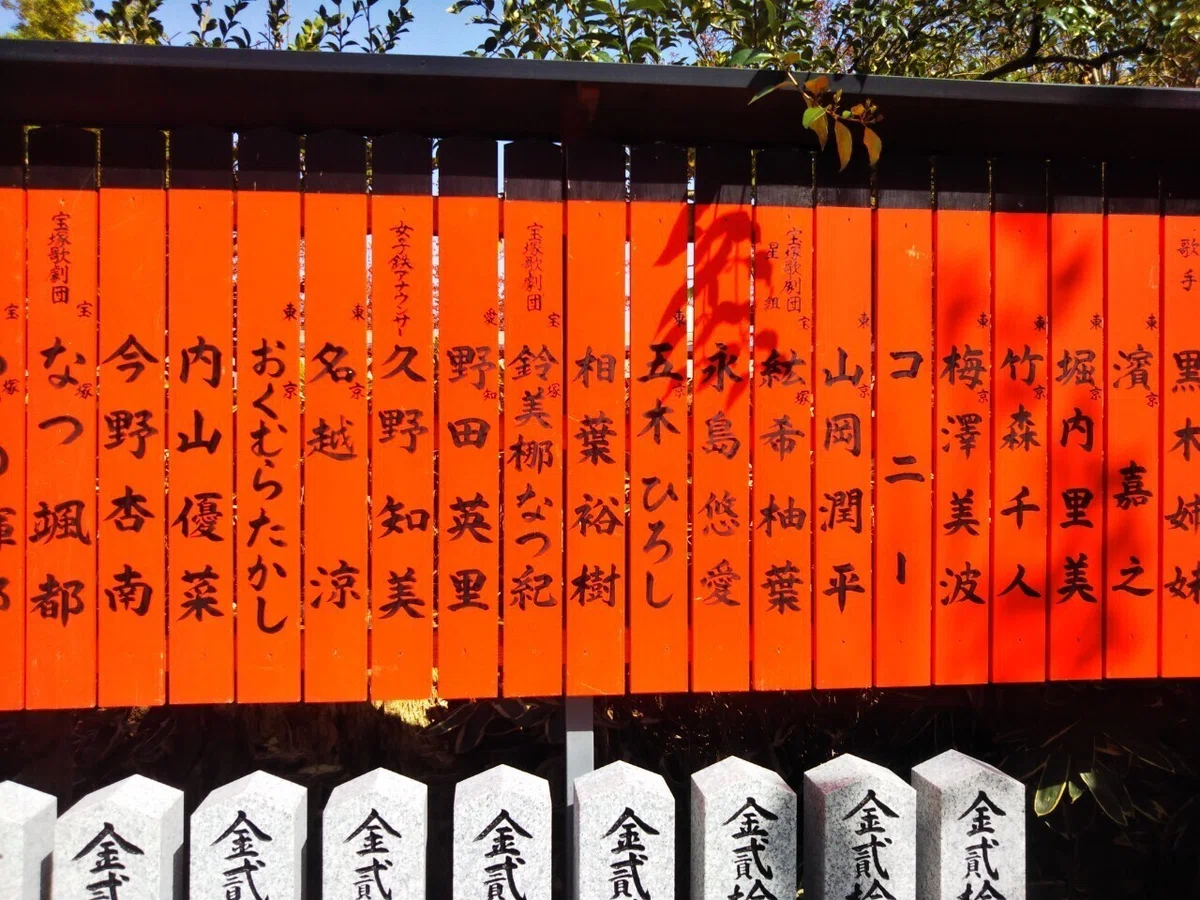 歌手
黒木姉妹
東京
濱嘉之
東京
堀内里美
東京
竹森千人
東京
梅澤美波
コニー
東京
山岡潤平
宝塚歌劇団
星組
宝塚
紘希柚葉
永島悠愛
東京
五木ひろし
相葉裕樹
宝塚歌劇団
宝塚
鈴美梛なつ紀
愛知
野田英里
女子鉄アナウンサー
久野知美
東京
名越涼
東京
おくむらたかし
内山優菜
今野杏南
宝塚歌劇団
宝塚
なつ颯都
宝塚
金貳拾
金貳拾
金貳拾
金貳
金貳
金貳
金貳
金貳